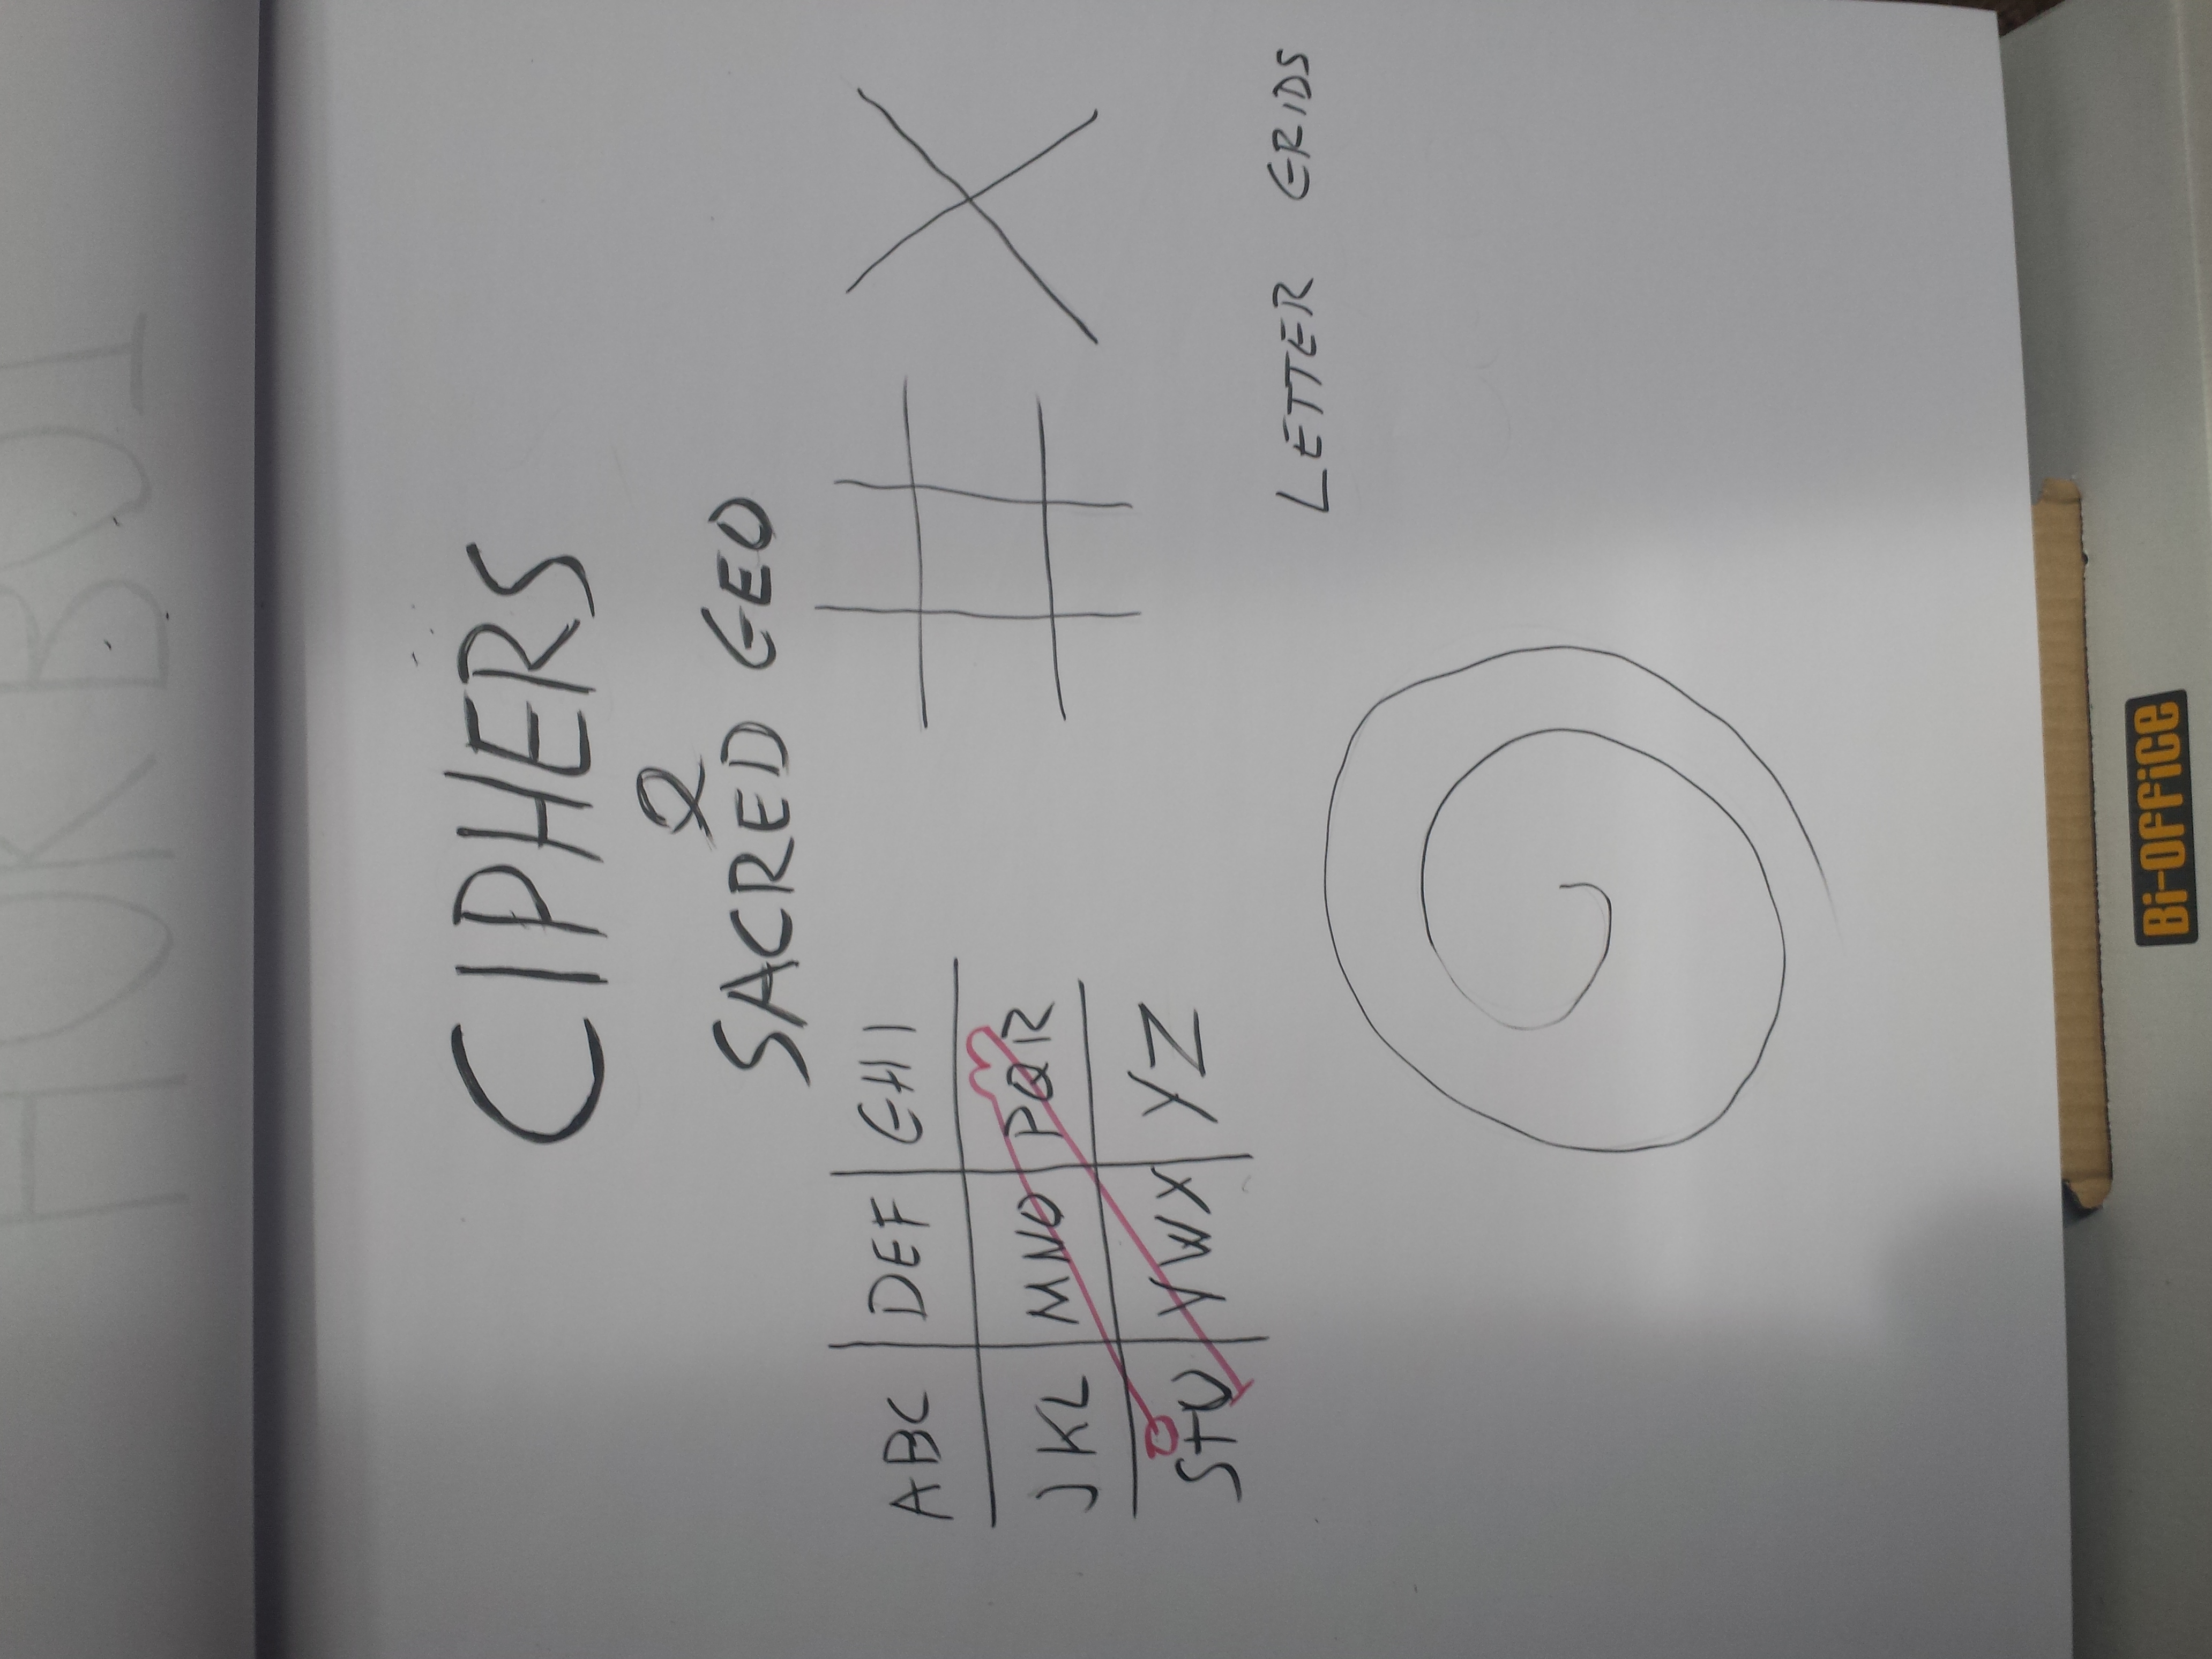 CIPHERS
&
SACRED GEO
ABC DEF GHI
JKL MNO PQR
STU VWX YZ
LETTER GRIDS
Bi-OFFiCE